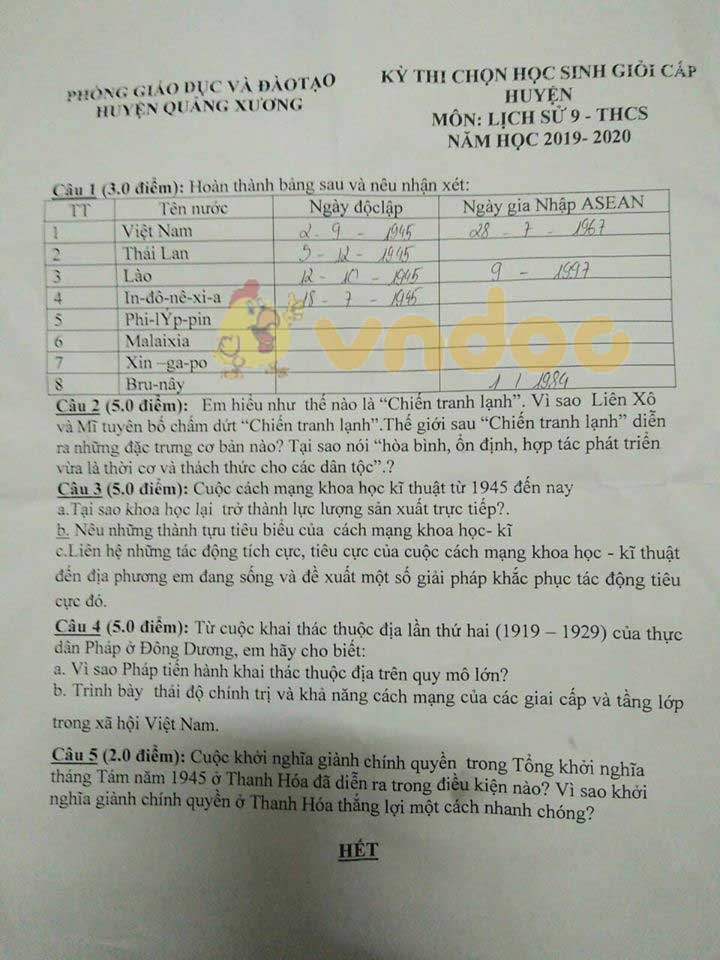 PHÒNG GIÁO DỤC VÀ ĐÀOTẠO
HUYỆN QUẢNG XƯƠNG
KỲ THI CHỌN HỌC SINH GIỎI CẤP
HUYỆN
MÔN: LỊCH SỬ 9 - THCS
NĂM HỌC 2019- 2020
Câu 1 (3.0 điểm): Hoàn thành bảng sau và nêu nhận xét:
TT Tên nước Ngày độclập Ngày gia Nhập ASEAN
1 Việt Nam 2 - 9 - 1945 28 - 7 - 1967
2 Thái Lan 5 - 12 - 1945
3 Lào 12 - 10 - 1945 9 - 1997
4 In-đô-nê-xi-a 18 - 7 - 1945
5 Phi-lÝp-pin
6 Malaixia
7 Xin –ga-po
8 Bru-nây 1 / 1984
vndoc
Câu 2 (5.0 điểm): Em hiểu như thế nào là “Chiến tranh lạnh”. Vì sao Liên Xô
và Mĩ tuyên bố chấm dứt “Chiến tranh lạnh”.Thế giới sau “Chiến tranh lạnh” diễn
ra những đặc trưng cơ bản nào? Tại sao nói “hòa bình, ổn định, hợp tác phát triển
vừa là thời cơ và thách thức cho các dân tộc”.?
Câu 3 (5.0 điểm): Cuộc cách mạng khoa học kĩ thuật từ 1945 đến nay
a.Tại sao khoa học lại trở thành lực lượng sản xuất trực tiếp?.
b. Nêu những thành tựu tiêu biểu của cách mạng khoa học- kĩ
c.Liên hệ những tác động tích cực, tiêu cực của cuộc cách mạng khoa học - kĩ thuật
đến địa phương em đang sống và đề xuất một số giải pháp khắc phục tác động tiêu
cực đó.
Câu 4 (5.0 điểm): Từ cuộc khai thác thuộc địa lần thứ hai (1919 – 1929) của thực
dân Pháp ở Đông Dương, em hãy cho biết:
a. Vì sao Pháp tiến hành khai thác thuộc địa trên quy mô lớn?
b. Trình bày thái độ chính trị và khả năng cách mạng của các giai cấp và tầng lớp
trong xã hội Việt Nam.
Câu 5 (2.0 điểm): Cuộc khởi nghĩa giành chính quyền trong Tổng khởi nghĩa
tháng Tám năm 1945 ở Thanh Hóa đã diễn ra trong điều kiện nào? Vì sao khởi
nghĩa giành chính quyền ở Thanh Hóa thắng lợi một cách nhanh chóng?
HẾT